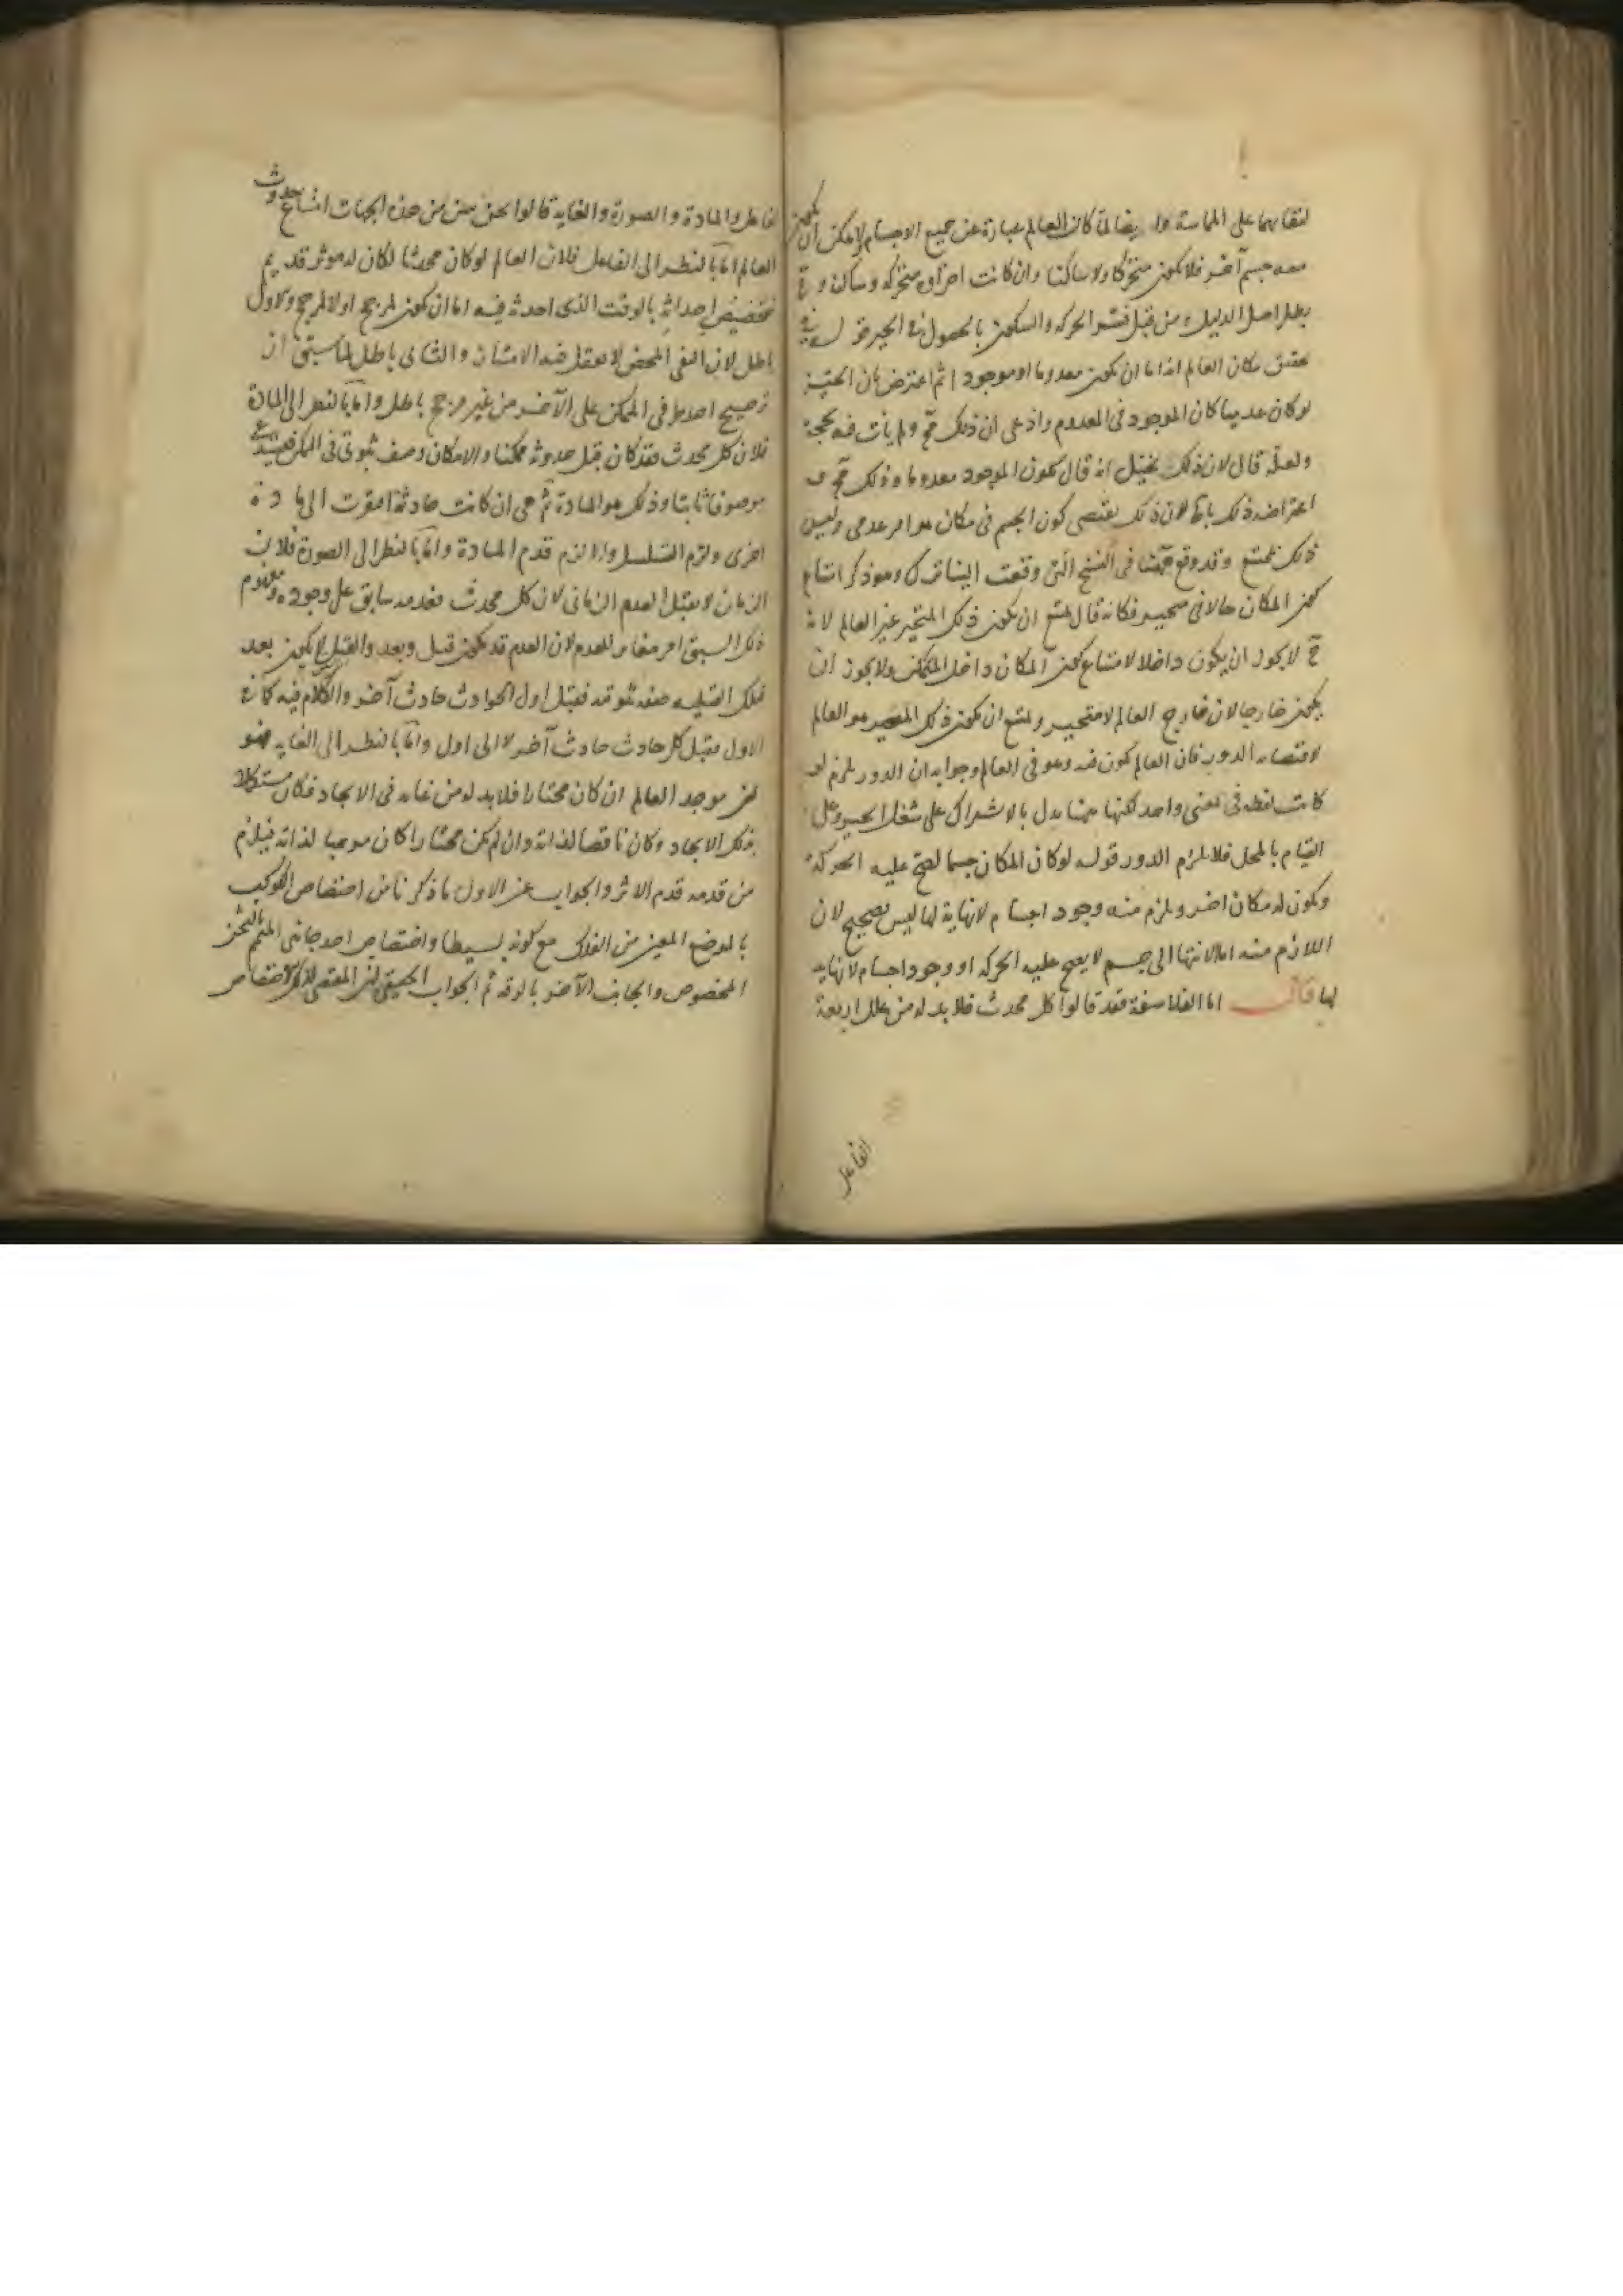 لتقابهما على المماسة وا يضا لما كان العالم عبارة عن جميع الاجسام لا يمكن ان يكون
معه جسم آخر فلا يكون متحركا ولا ساكنا وان كانت اجزاؤه متحركة وساكنة و ح
يطل اصل الدليل من قبل فسر الحركة والسكون بالحصول في الحيز
مكان العالم اذا اما ان يكون معدوما او موجودا ثم اعترض بان الحيز
لو كان عدميا كان الموجود في المعدوم وادعى ان ذلك مح ولم يات فيه بحجة
ولعله قال لان ذلك يخيل انه قال يكون الموجود معدوما وذلك مح
اعتراضه ذلك لان ذلك يقتضى كون الجسم في مكان هو امر عدمى وليس
ذلك بممتنع وقد وقع ههنا في النسخ التى وقعت الينا وهو ذكر امتناع
كون المكان حالا في متحيز فكانه قال يمتنع ان يكون ذلك المتحيز غير العالم لانه
ح لا يجوز ان يكون داخلا لامتناع كون المكان داخل المتمكن ولا يجوز ان
يكون خارجا لان خارج العالم لا متحيز ويمتنع ان يكون ذلك المتحيز هو العالم
لاقتضائه الدور فان العالم يكون فيه وهو في العالم وجوابه ان الدور يلزم لو
كانت لفظة في بمعنى واحد لكنها ههنا يدل بالاشتراك على شغل الحيز وعلى
القيام بالمحل فلا يلزم الدور قوله لو كان المكان جسما لصح عليه الحركة
ويكون له مكان اخر ويلزم منه وجود اجسام لا نهاية لها ليس بصحيح لان
اللازم منه اما الانتهاء الى جسم لا يصح عليه الحركة او وجود اجسام لا نهاية
لها قال اما الفلاسفة فقد قالوا كل محدث فلا بد له من علل اربعة
الفاعل
الفاعل والمادة والصورة والغاية قالوا نحن نبين من هذه الجهات امتناع حدوث
العالم اما بالنظر الى الفاعل فلان العالم لو كان محدثا لكان له موثر قديم
تخصيص احداثه بالوقت الذى احدثه فيه اما ان يكون لمرجح او لا لمرجح والاول
باطل لان النفى المحض لا يعقل فيه الامتياز والثانى باطل لما سبق ان
ترجيح احد طرفى الممكن على الآخر من غير مرجح باطل واما بالنظر الى المادة
فلان كل محدث فقد كان قبل حدوثه ممكنا والامكان وصف ثبوتى في الممكن فيستدعى
موصوفا ثابتا وذلك هو المادة ثم هى ان كانت حادثة افتقرت الى مادة
اخرى ولزم التسلسل والا لزم قدم المادة واما بالنظر الى الصورة فلان
الزمان لا يقبل العدم الزمانى لان كل محدث فعدمه سابق على وجوده ومفهوم
ذلك السبق امر مغاير للعدم لان العدم قد يكون قبل وبعد والقبل لا يكون بعد
فتلك القبلية صفة ثبوتية فقبل اول الحوادث حادث آخر والكلام فيه كما في
الاول فقبل كل حادث حادث آخر لا الى اول واما بالنظر الى الغاية فهو
ان موجد العالم ان كان مختارا فلا بد له من غاية في الايجاد فكان مستكملا
بذلك الايجاد وكان ناقصا لذاته وان لم يكن مختارا كان موجبا لذاته فيلزم
من قدمه قدم الاثر والجواب عن الاول ما ذكرنا من اختصاص الكوكب
بالموضع المعين من الفلك مع كونه بسيطا واختصاص احد جانبى المتمم بالثخن
المخصوص والجانب الآخر بالرقة ثم الجواب الحقيقى ان المقتضى لذلك الاختصاص